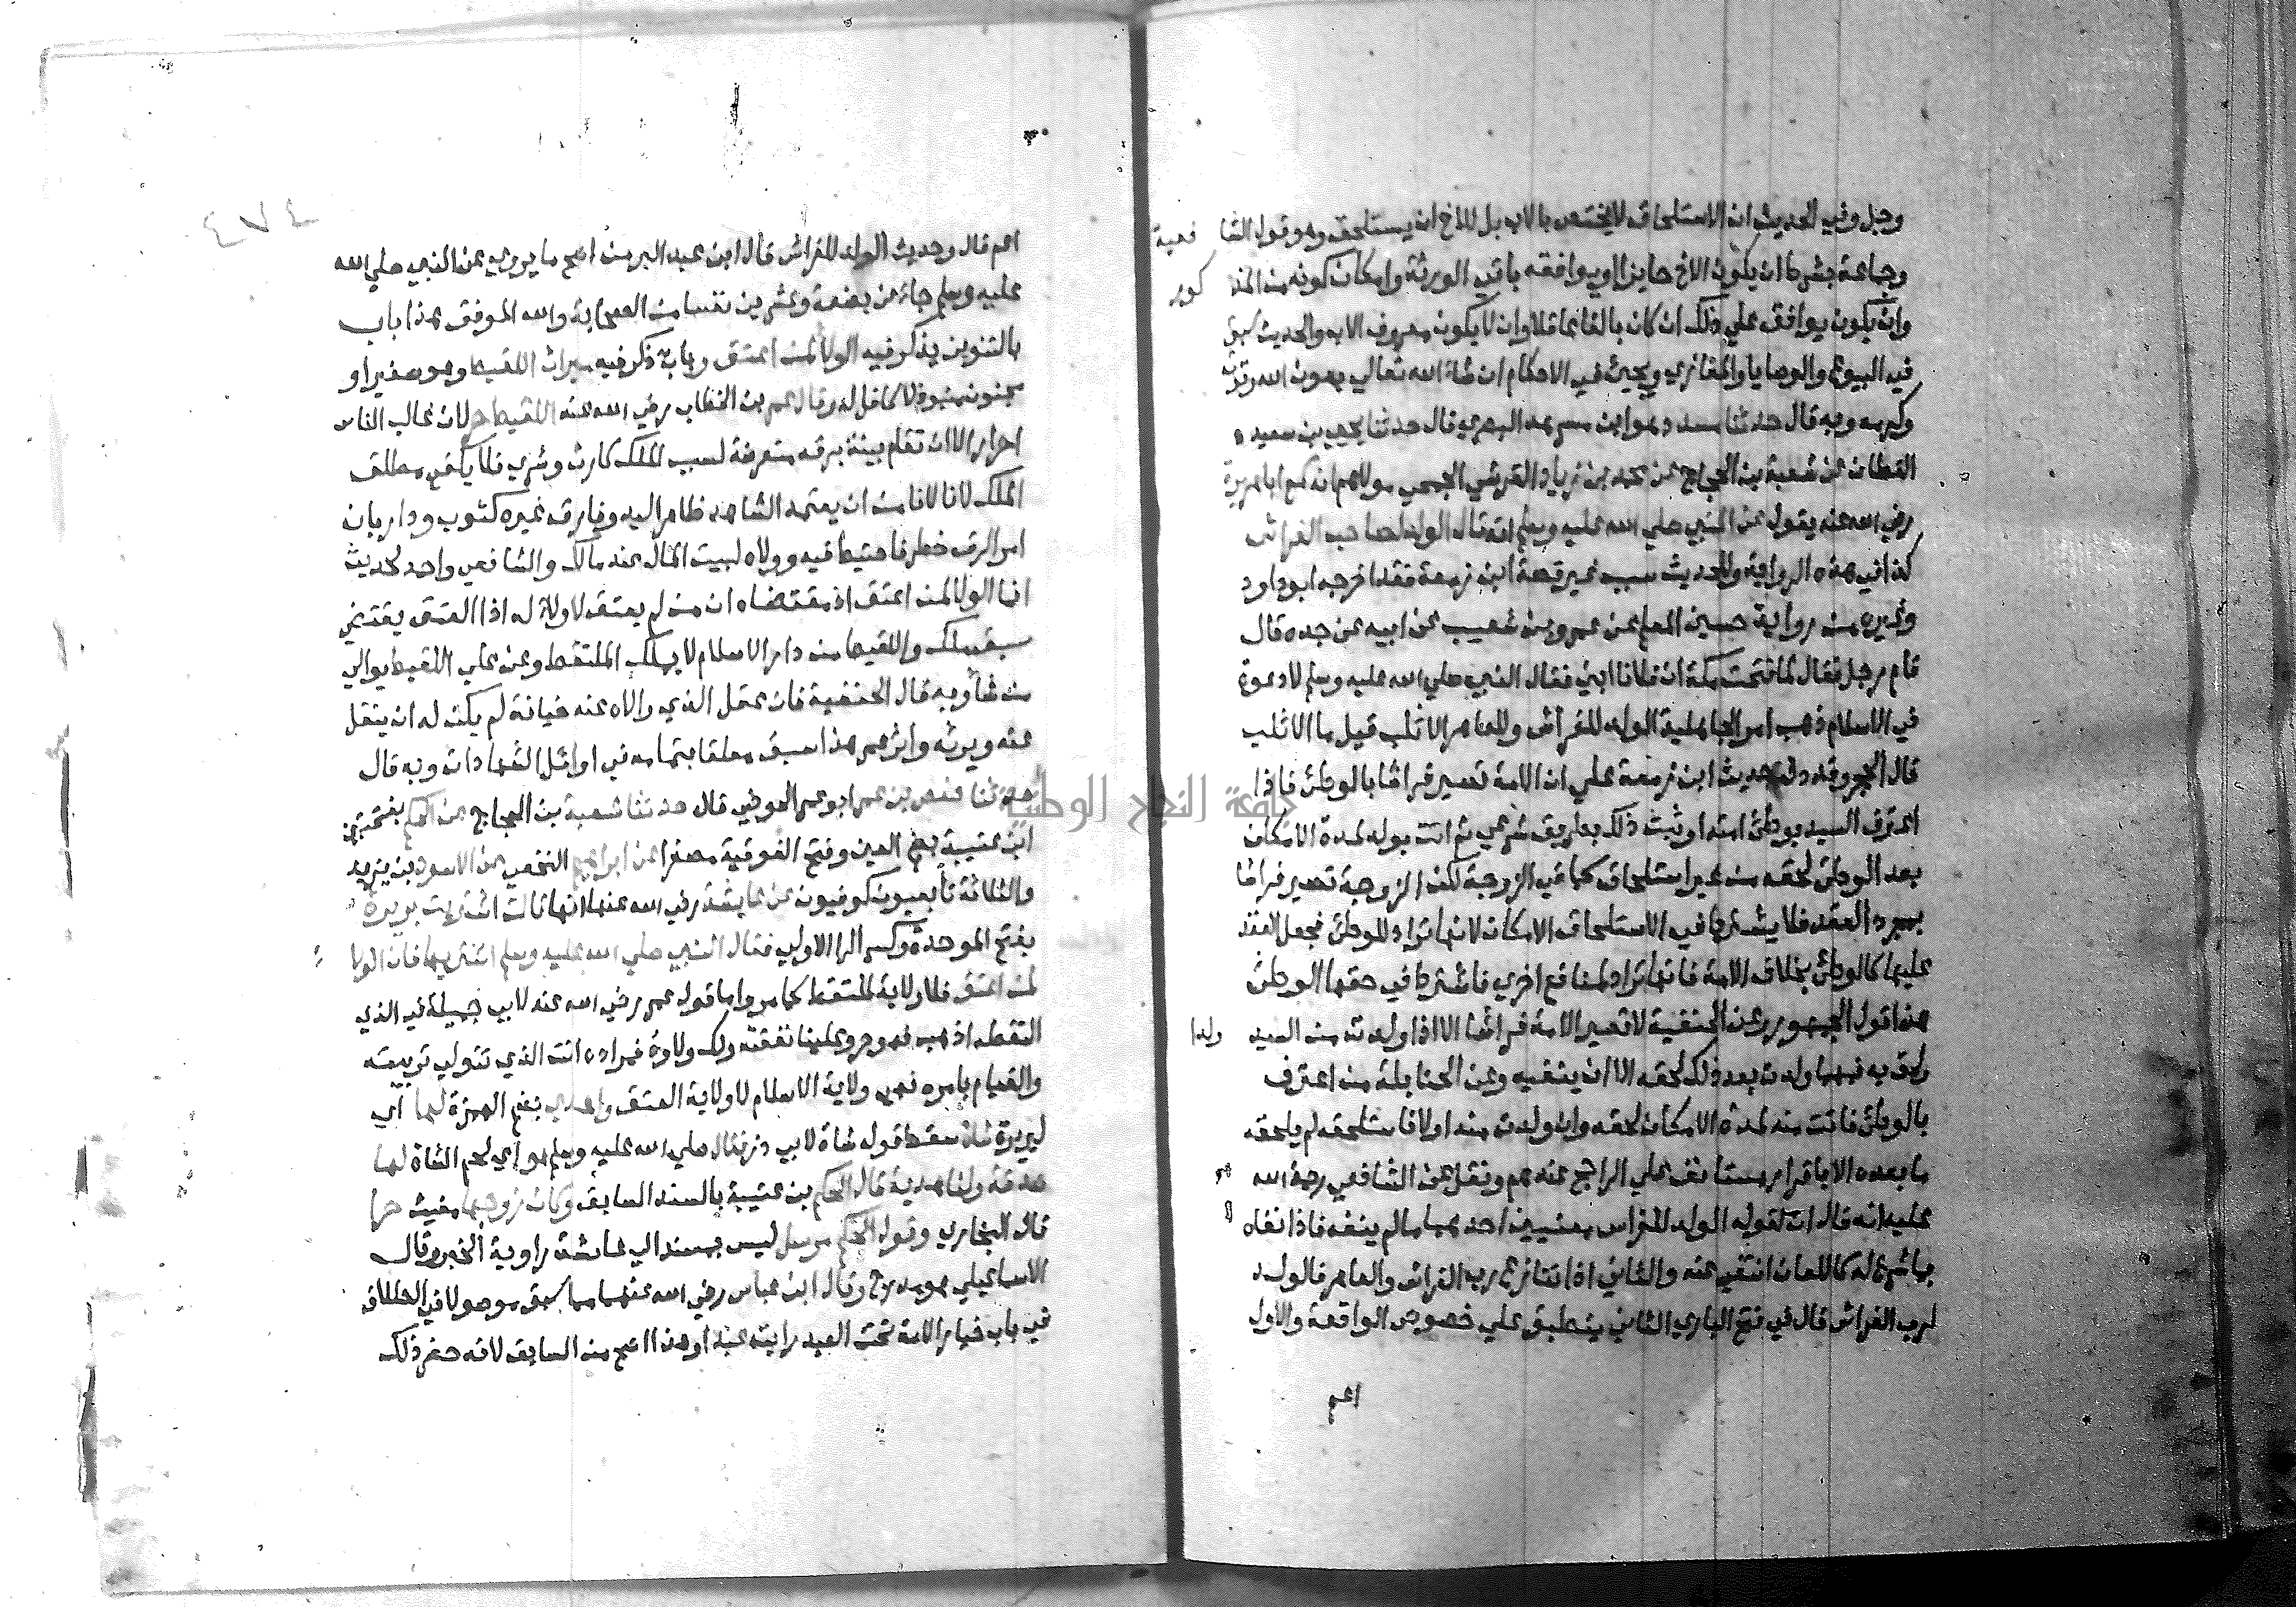 وجل وفي الحديث ان الاستلحاق لا يختص بالاب بل للاخ ان يستلحق وهو قول الشا فعية
وجماعة بشرط ان يكون الاخ حايزا او يوافقه باقي الورثة وامكان كونه من المذ كور
وان يكون يوافق علي ذلك ان كان بالغا عاقلا وان لا يكون معروف الاب والحديث سبق
في البيوع والوصايا والمغازي ويجئ في الاحكام ان شاء الله تعالي بعون الله وقوته
وكرمه وبه قال حدثنا مسدد هو ابن مسرهد البصري قال حدثنا يحيي بن سعيد
القطان عن شعبة بن الحجاج عن محمد بن زياد القرشي الجمحي مولاهم انه سمع ابا هريرة
رضي الله عنه يقول عن النبي صلي الله عليه وسلم انه قال الولد لصاحب الفراش
كذا في هذه الرواية وللحديث سبب غير قصة ابن زمعة فقد اخرجه ابو داود
وغيره من رواية حسين المعلم عن عمرو بن شعيب عن ابيه عن جده قال
قام رجل فقال لما فتحت مكة ان فلانا ابني فقال النبي صلي الله عليه وسلم لا دعوة
في الاسلام ذهب امر الجاهلية الولد للفراش وللعاهر الاثلب قيل ما الاثلب
قال الحجر وقد دل حديث ابن زمعة علي ان الامة تصير فراشا بالوطئ فاذا
اعترف السيد بوطئ امته او ثبت ذلك بطريق شرعي ثم اتت بولد لمدة الامكان
بعد الوطئ لحقه من غير استلحاق كما في الزوجة لكن الزوجة تصير فراشا
بمجرد العقد فلا يشترط في الاستلحاق الا الامكان لانها تراد للوطئ فجعل العقد
عليها كالوطئ بخلاف الامة فانها تراد لمنافع اخري فاشترط في حقها الوطئ
هذا قول الجمهور وعن الحنفية لا تصير الامة فراشا الا اذا ولدت من السيد ولدا
ولحق به فمهما ولدت بعد ذلك لحقه الا ان ينفيه وعن الحنابلة من اعترف
بالوطئ فاتت منه لمدة الامكان لحقه وان ولدت منه اولا فاستلحقه لم يلحقه
ما بعده الا باقرار مستانف علي الراجح عندهم ونقل عن الشافعي رحمة الله
عليه انه قال ان لقوله الولد للفراش معنيين احدهما ما لم ينفه فاذا نفاه
بما شرع له كاللعان انتفي عنه والثاني اذا تنازع رب الفراش والعاهر فالولد
لرب الفراش قال في فتح الباري الثاني ينطبق علي خصوص الواقعة والاول
اعم
٤٧٤
اعم قال وحديث الولد للفراش قال ابن عبد البر من اصح ما يروي عن النبي صلي الله
عليه وسلم جاء عن بضعة وعشرين نفسا من الصحابة والله الموفق هذا باب
بالتنوين يذكر فيه الولاء لمن اعتق وباب ذكر فيه ميراث اللقيط وهو صغير او
مجنون منبوذ لا كافل له وقال عمر بن الخطاب رضي الله عنه اللقيط حر لان غالب الناس
احرار الا ان تقام بينة برقه متعرضة لسبب الملك كارث وشري فلا يكفي مطلق
الملك لانا لا نامن ان يعتمد الشاهد ظاهر اليد وفارق غيره كثوب ودار بان
امر الرق خطر فاحتيط فيه وولاه لبيت المال عند مالك والشافعي واحمد لحديث
انما الولا لمن اعتق اذ مقتضاه ان من لم يعتق لا ولاء له اذ العتق يقتضي
سبق ملك واللقيط من دار الاسلام لا يملك الملتقط وعن علي اللقيط يوالي
من شاء وبه قال الحنفية فان عقل الذي والاه عنه جناية لم يكن له ان ينقل
عنه ويرثه واثر عمر هذا سبق معلقا بتمامه في اوائل الشهادات وبه قال
حدثنا حفص بن عمر ابو عمر الحوضي قال حدثنا شعبة بن الحجاج عن الحكم بفتحتين
ابن عتيبة بضم العين وفتح الفوقية مصغرا عن ابراهيم النخعي عن الاسود بن يزيد
والثلاثة تابعيون كوفيون عن عايشة رضي الله عنها انها قالت اشتريت بريرة
بفتح الموحدة وكسر الرا الاولي فقال النبي صلي الله عليه وسلم اشتريها فان الولا
لمن اعتق فلا ولاية للملتقط كما مر واما قول عمر رضي الله عنه لابي جميلة في الذي
التقطه اذهب فهو حر وعلينا نفقته ولك ولاؤه فمراده انت الذي تتولي تربيته
والقيام بامره فهي ولاية الاسلام لا ولاية العتق واهدي بضم الهمزة لها اي
لبريرة شاة سقط قوله شاة لابي ذر فقال صلي الله عليه وسلم هو اي لحم الشاة لها
صدقة ولنا هدية قال الحكم بن عتيبة بالسند السابق وكان زوجها مغيث حرا
قال البخاري وقول الحكم مرسل ليس بمسند الي عائشة راوية الخبر وقال
الاسماعيلي هو مدرج وقال ابن عباس رضي الله عنهما مما سبق موصولا في الطلاق
في باب خيار الامة تحت العبد رايته عبدا وهذا اصح من السابق لانه حضر ذلك
جامعة النجاح الوطنية